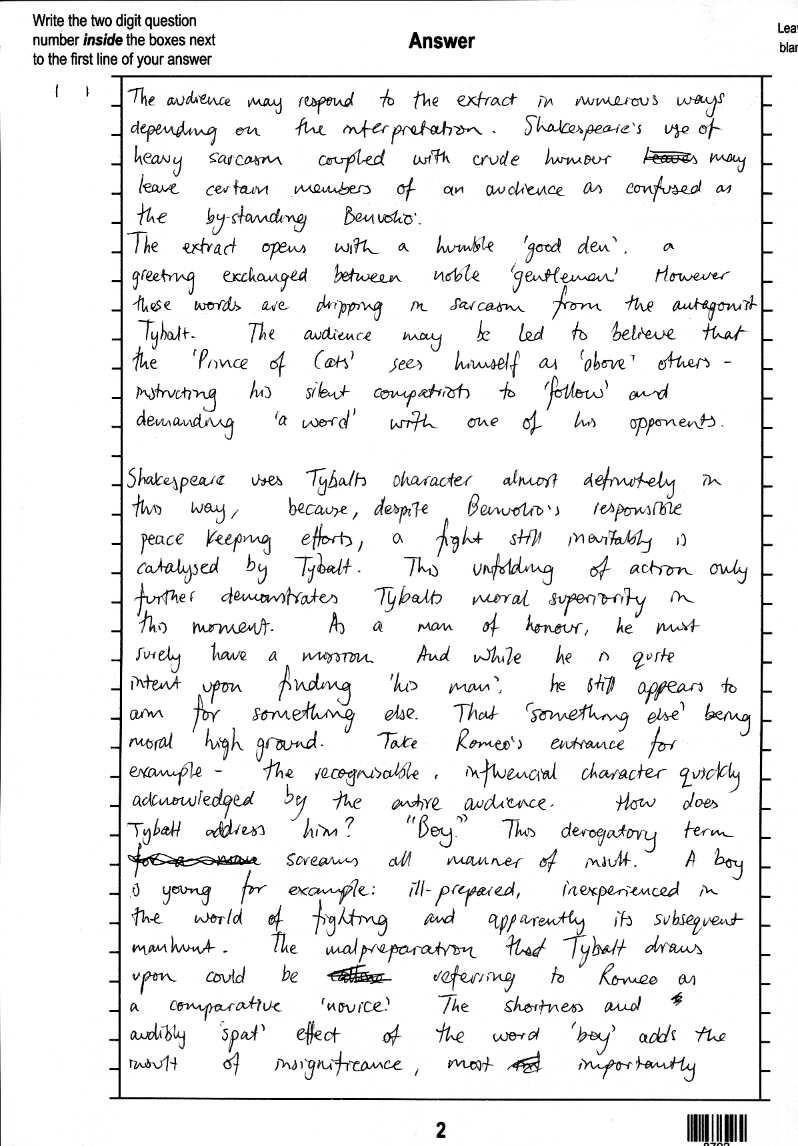 Write the two digit question
number inside the boxes next
to the first line of your answer
Answer
Lea
blan
1 1
The audience may respond to the extract in numerous ways
depending on the interpretation. Shakespeare's use of
heavy sarcasm coupled with crude humour may
leave certain members of an audience as confused as
the by-standing Benvolio.
The extract opens with a humble 'good den', a
greeting exchanged between noble 'gentlemen'. However
these words are dripping in sarcasm from the antagonist
Tybalt. The audience may be led to believe that
the 'Prince of Cats' sees himself as 'above' others -
instructing his silent compatriots to 'follow' and
demanding 'a word' with one of his opponents.
Shakespeare uses Tybalts character almost definitely in
this way, because, despite Benvolio's responsible
peace keeping efforts, a fight still inevitably is
catalysed by Tybalt. This unfolding of action only
further demonstrates Tybalts moral superiority in
this moment. As a man of honour, he must
surely have a mission. And while he is quite
intent upon finding 'his man', he still appears to
aim for something else. That 'something else' being
moral high ground. Take Romeo's entrance for
example - the recognisable, influencial character quickly
acknowledged by the entire audience. How does
Tybalt address him? "Boy." This derogatory term
screams all manner of insult. A boy
is young for example: ill-prepared, inexperienced in
the world of fighting and apparently its subsequent
manhunt. The malpreparation that Tybalt draws
upon could be referring to Romeo as
a comparative 'novice'. The shortness and
audibly 'spat' effect of the word 'boy' adds the
insult of insignificance, most importantly
2